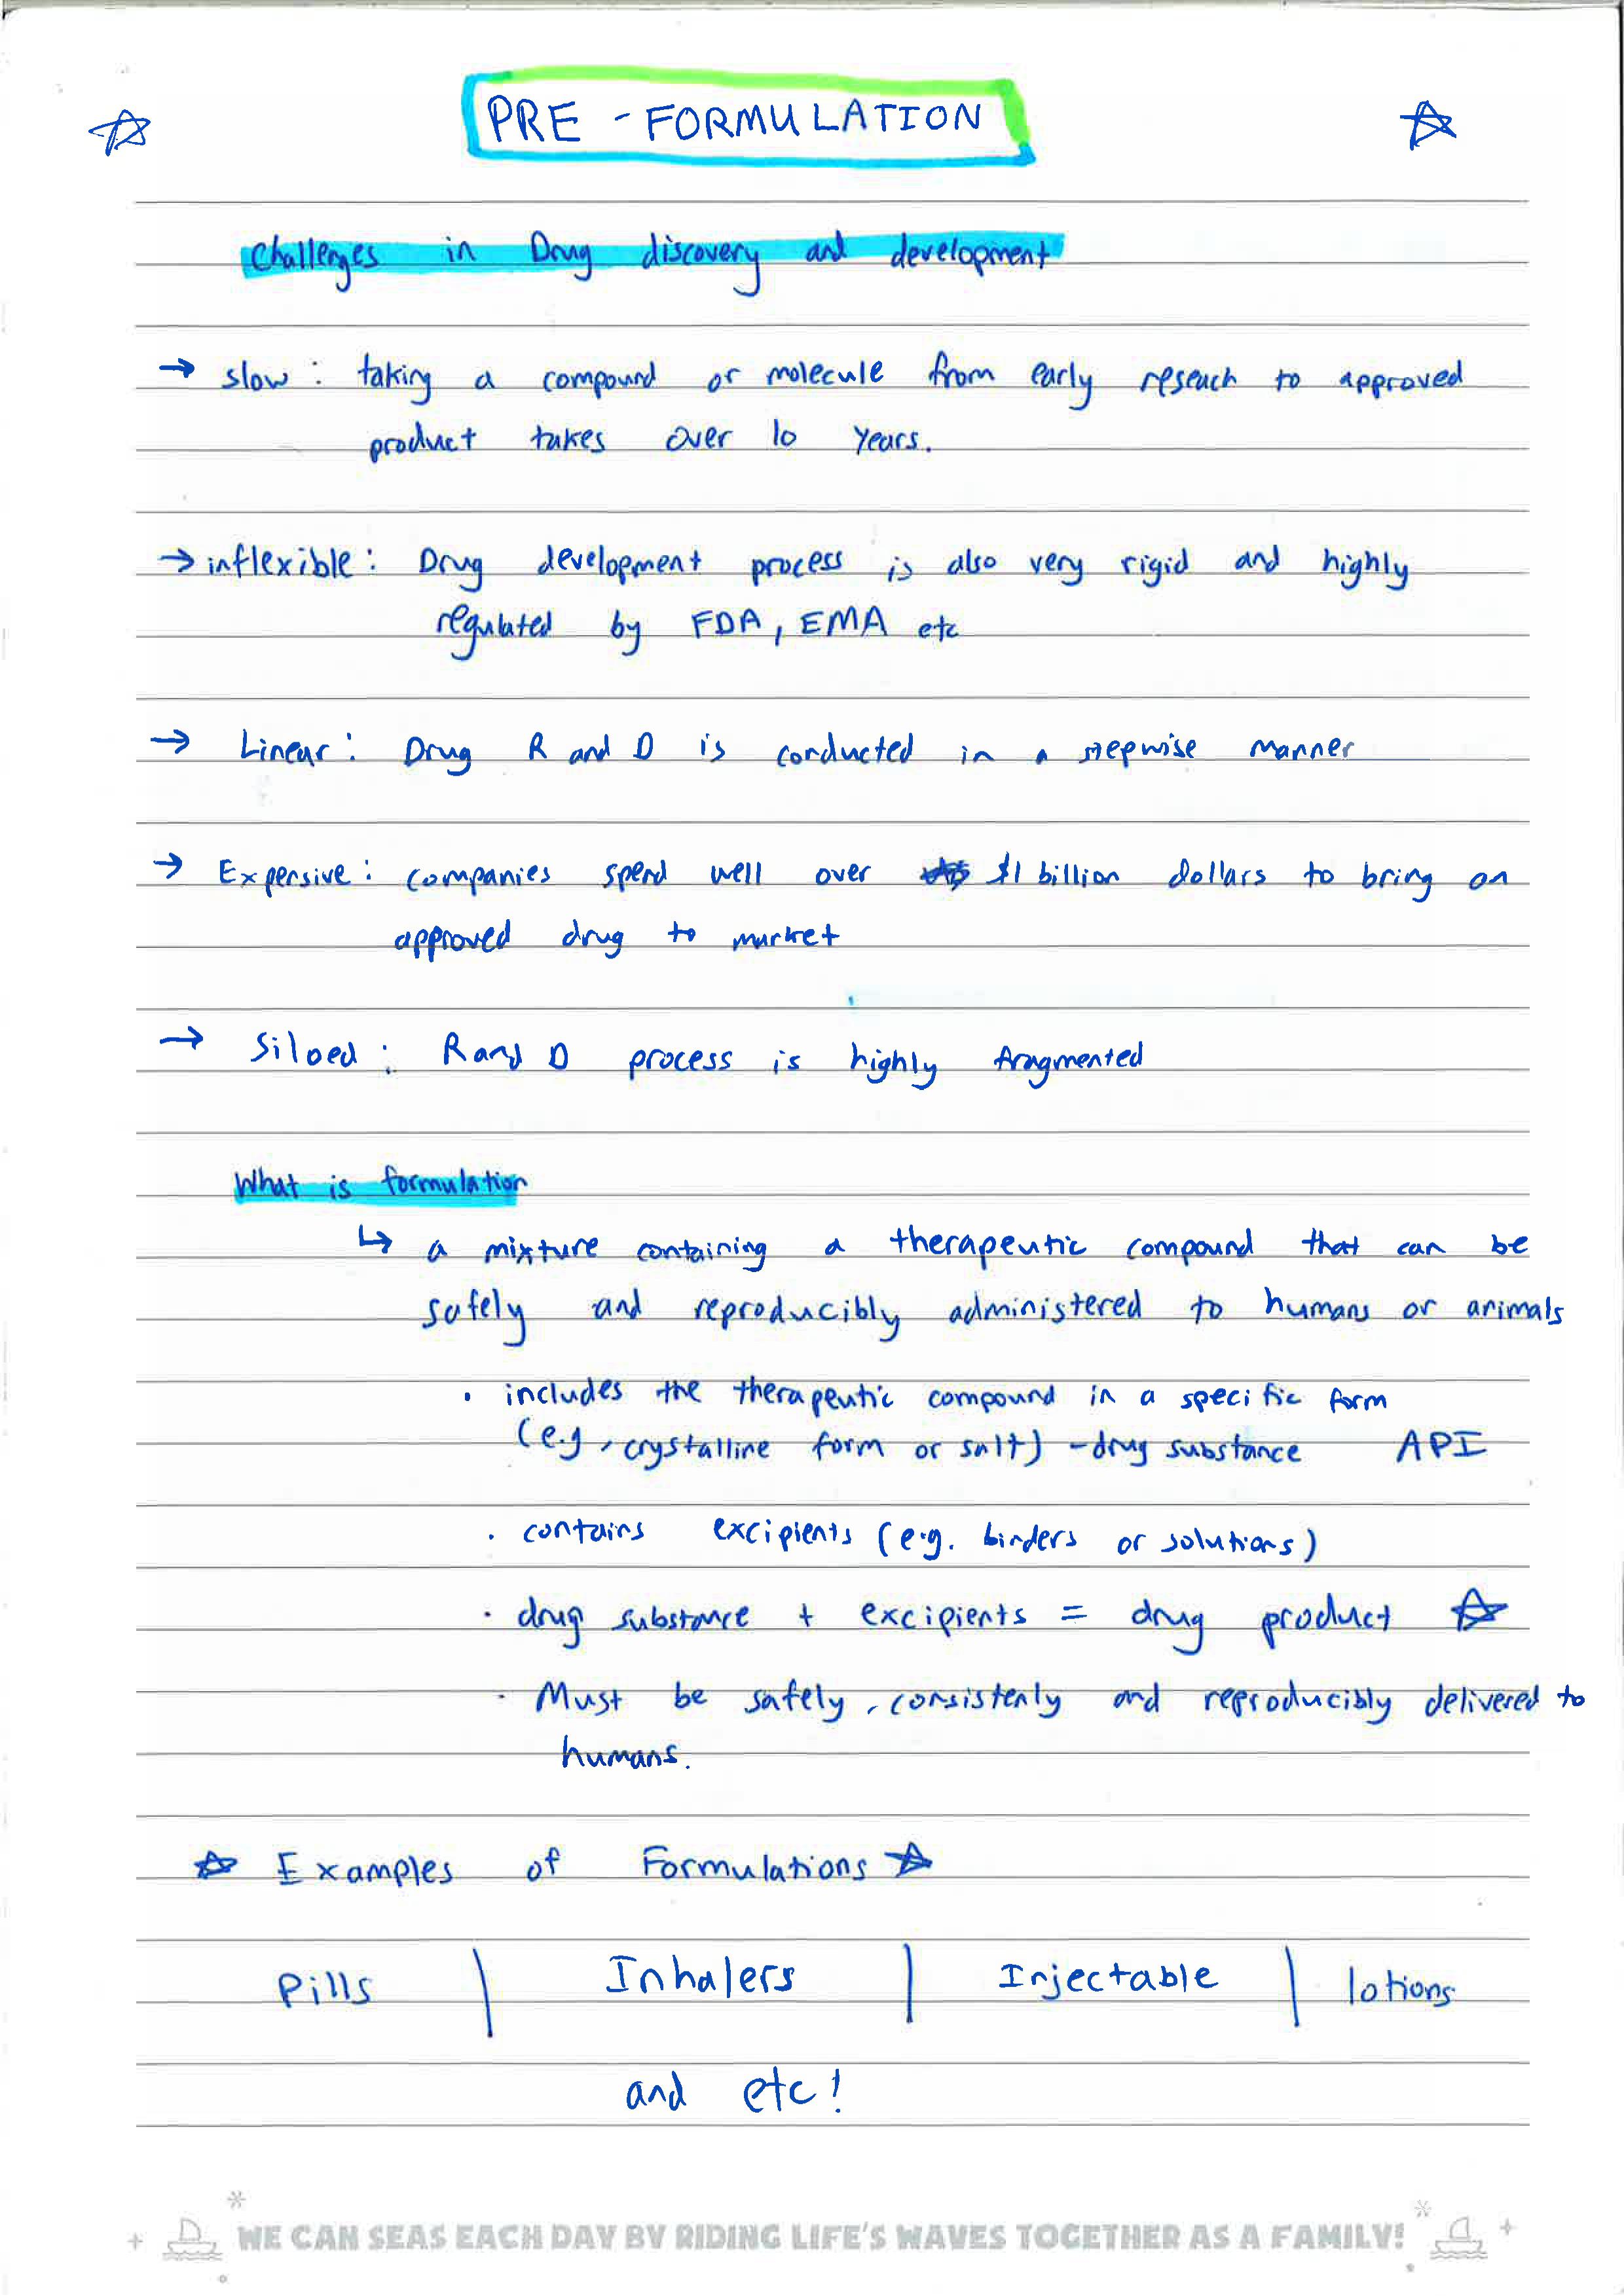 PRE - FORMULATION
Challenges in Drug discovery and development
→ slow : taking a compound or molecule from early reseach to approved
product takes over 10 years.
→ inflexible : Drug development process is also very rigid and highly
regulated by FDA, EMA etc
→ Linear : Drug R and D is conducted in a stepwise manner
→ Expensive : companies spend well over $1 billion dollars to bring on
approved drug to market
→ Siloed : R and D process is highly fragmented
What is formulation
↳ a mixture containing a therapeutic compound that can be
safely and reproducibly administered to humans or animals
· includes the therapeutic compound in a specific form
(e.g, crystalline form or salt) - drug substance API
· contains excipients (e.g. binders or solutions)
· drug substance + excipients = drug product ☆
· Must be safely, consistenly and reproducibly delivered to
humans.
☆ Examples of Formulations ☆
Pills | Inhalers | Injectable | lotions
and etc!
WE CAN SEAS EACH DAY BY RIDING LIFE'S WAVES TOGETHER AS A FAMILY!